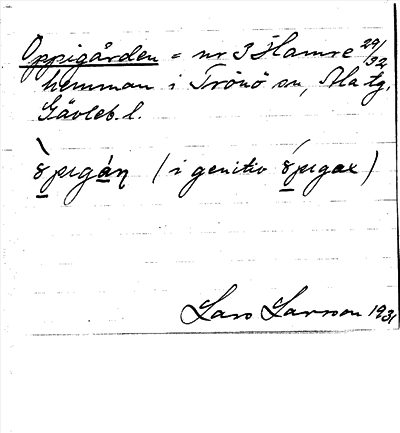 Oppigården = nr 3 Hamre 29/32
hemman i Trönö sn, Ala tg.
Gävleb. l.
(i genitiv
Lars Larsson 1931